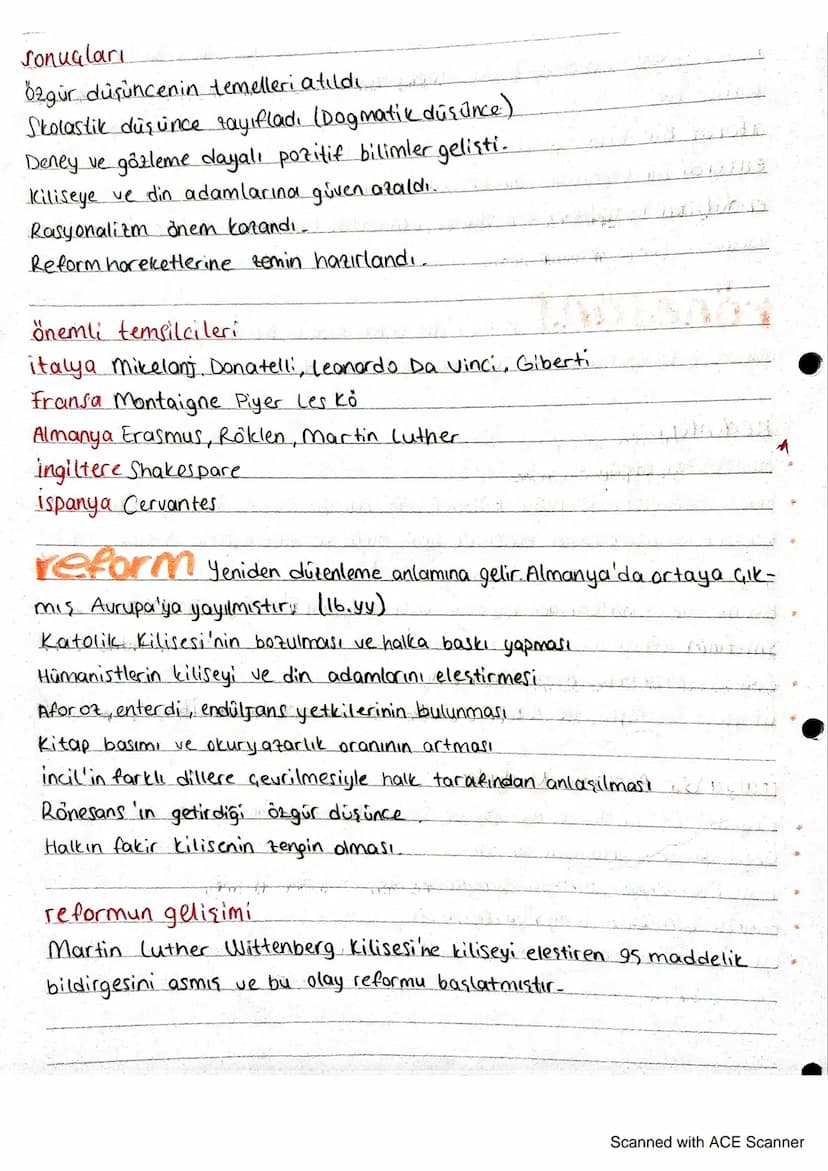 sonuçları
Özgür düşüncenin temelleri atıldı
Skolastik düşünce zayıfladı (Dogmatik düşünce)
Deney ve gözleme dayalı pozitif bilimler gelişti.
Kiliseye ve din adamlarına güven azaldı.
Rasyonalizm önem kazandı.
Reform hareketlerine zemin hazırlandı.
önemli temsilcileri
italya Mikelanj, Donatelli, Leonardo Da Vinci, Giberti
Fransa Montaigne Piyer Les Kö
Almanya Erasmus, Röklen, Martin Luther
ingiltere Shakespare
ispanya Cervantes
reform Yeniden düzenleme anlamına gelir. Almanya'da ortaya çık-
mış Avrupa'ya yayılmıştır. (16.yy)
Katolik Kilisesi'nin bozulması ve halka baskı yapması
Hümanistlerin kiliseyi ve din adamlarını eleştirmesi
Aforoz, enterdi, endüljans yetkilerinin bulunması
Kitap basımı ve okuryazarlık oranının artması
incil'in farklı dillere çevrilmesiyle halk tarafından anlaşılması
Rönesans'ın getirdiği özgür düşünce
Halkın fakir kilisenin zengin olması
reformun gelişimi
Martin Luther Wittenberg Kilisesi'ne kiliseyi eleştiren 95 maddelik
bildirgesini asmış ve bu olay reformu başlatmıştır.
Scanned with ACE Scanner